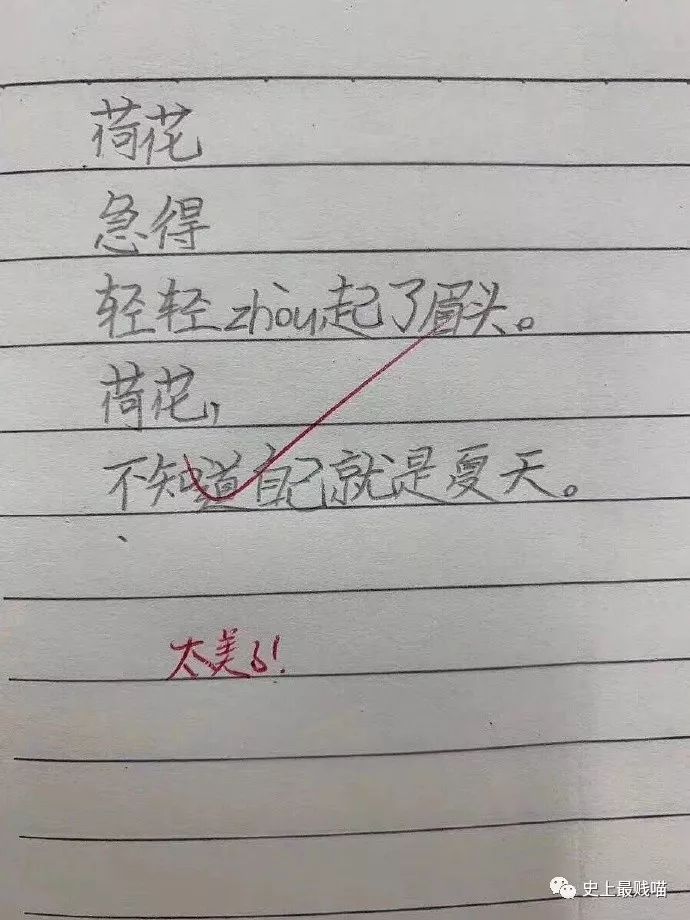 荷花
急得
轻轻zhòu起了眉头。
荷花,
不知道自己就是夏天。
、
太美了!
史上最贱喵